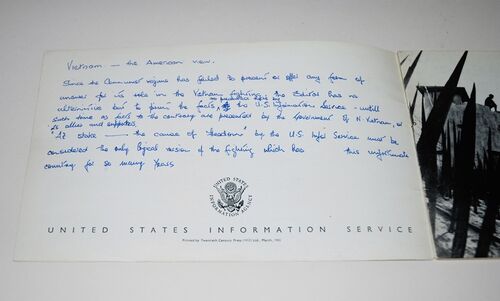 Vietnam — the American view.
Since the Communist regime has failed to present or offer any form of
answer for its role in the Vietnam fighting the Editor has no
as produced here by
alternative but to print the facts, the U.S. Information Service - until
such time as facts to the contrary are presented by the Government of N. Vietnam, or
its allies and supporters.
'At stake — the cause of freedom' by the U.S. Infm Service must be
considered the only logical version of the fighting which has this unfortunate
country for so many years
UNITED STATES
INFORMATION AGENCY
UNITED STATES INFORMATION SERVICE
Printed by Twentieth Century Press (1912) Ltd., March,